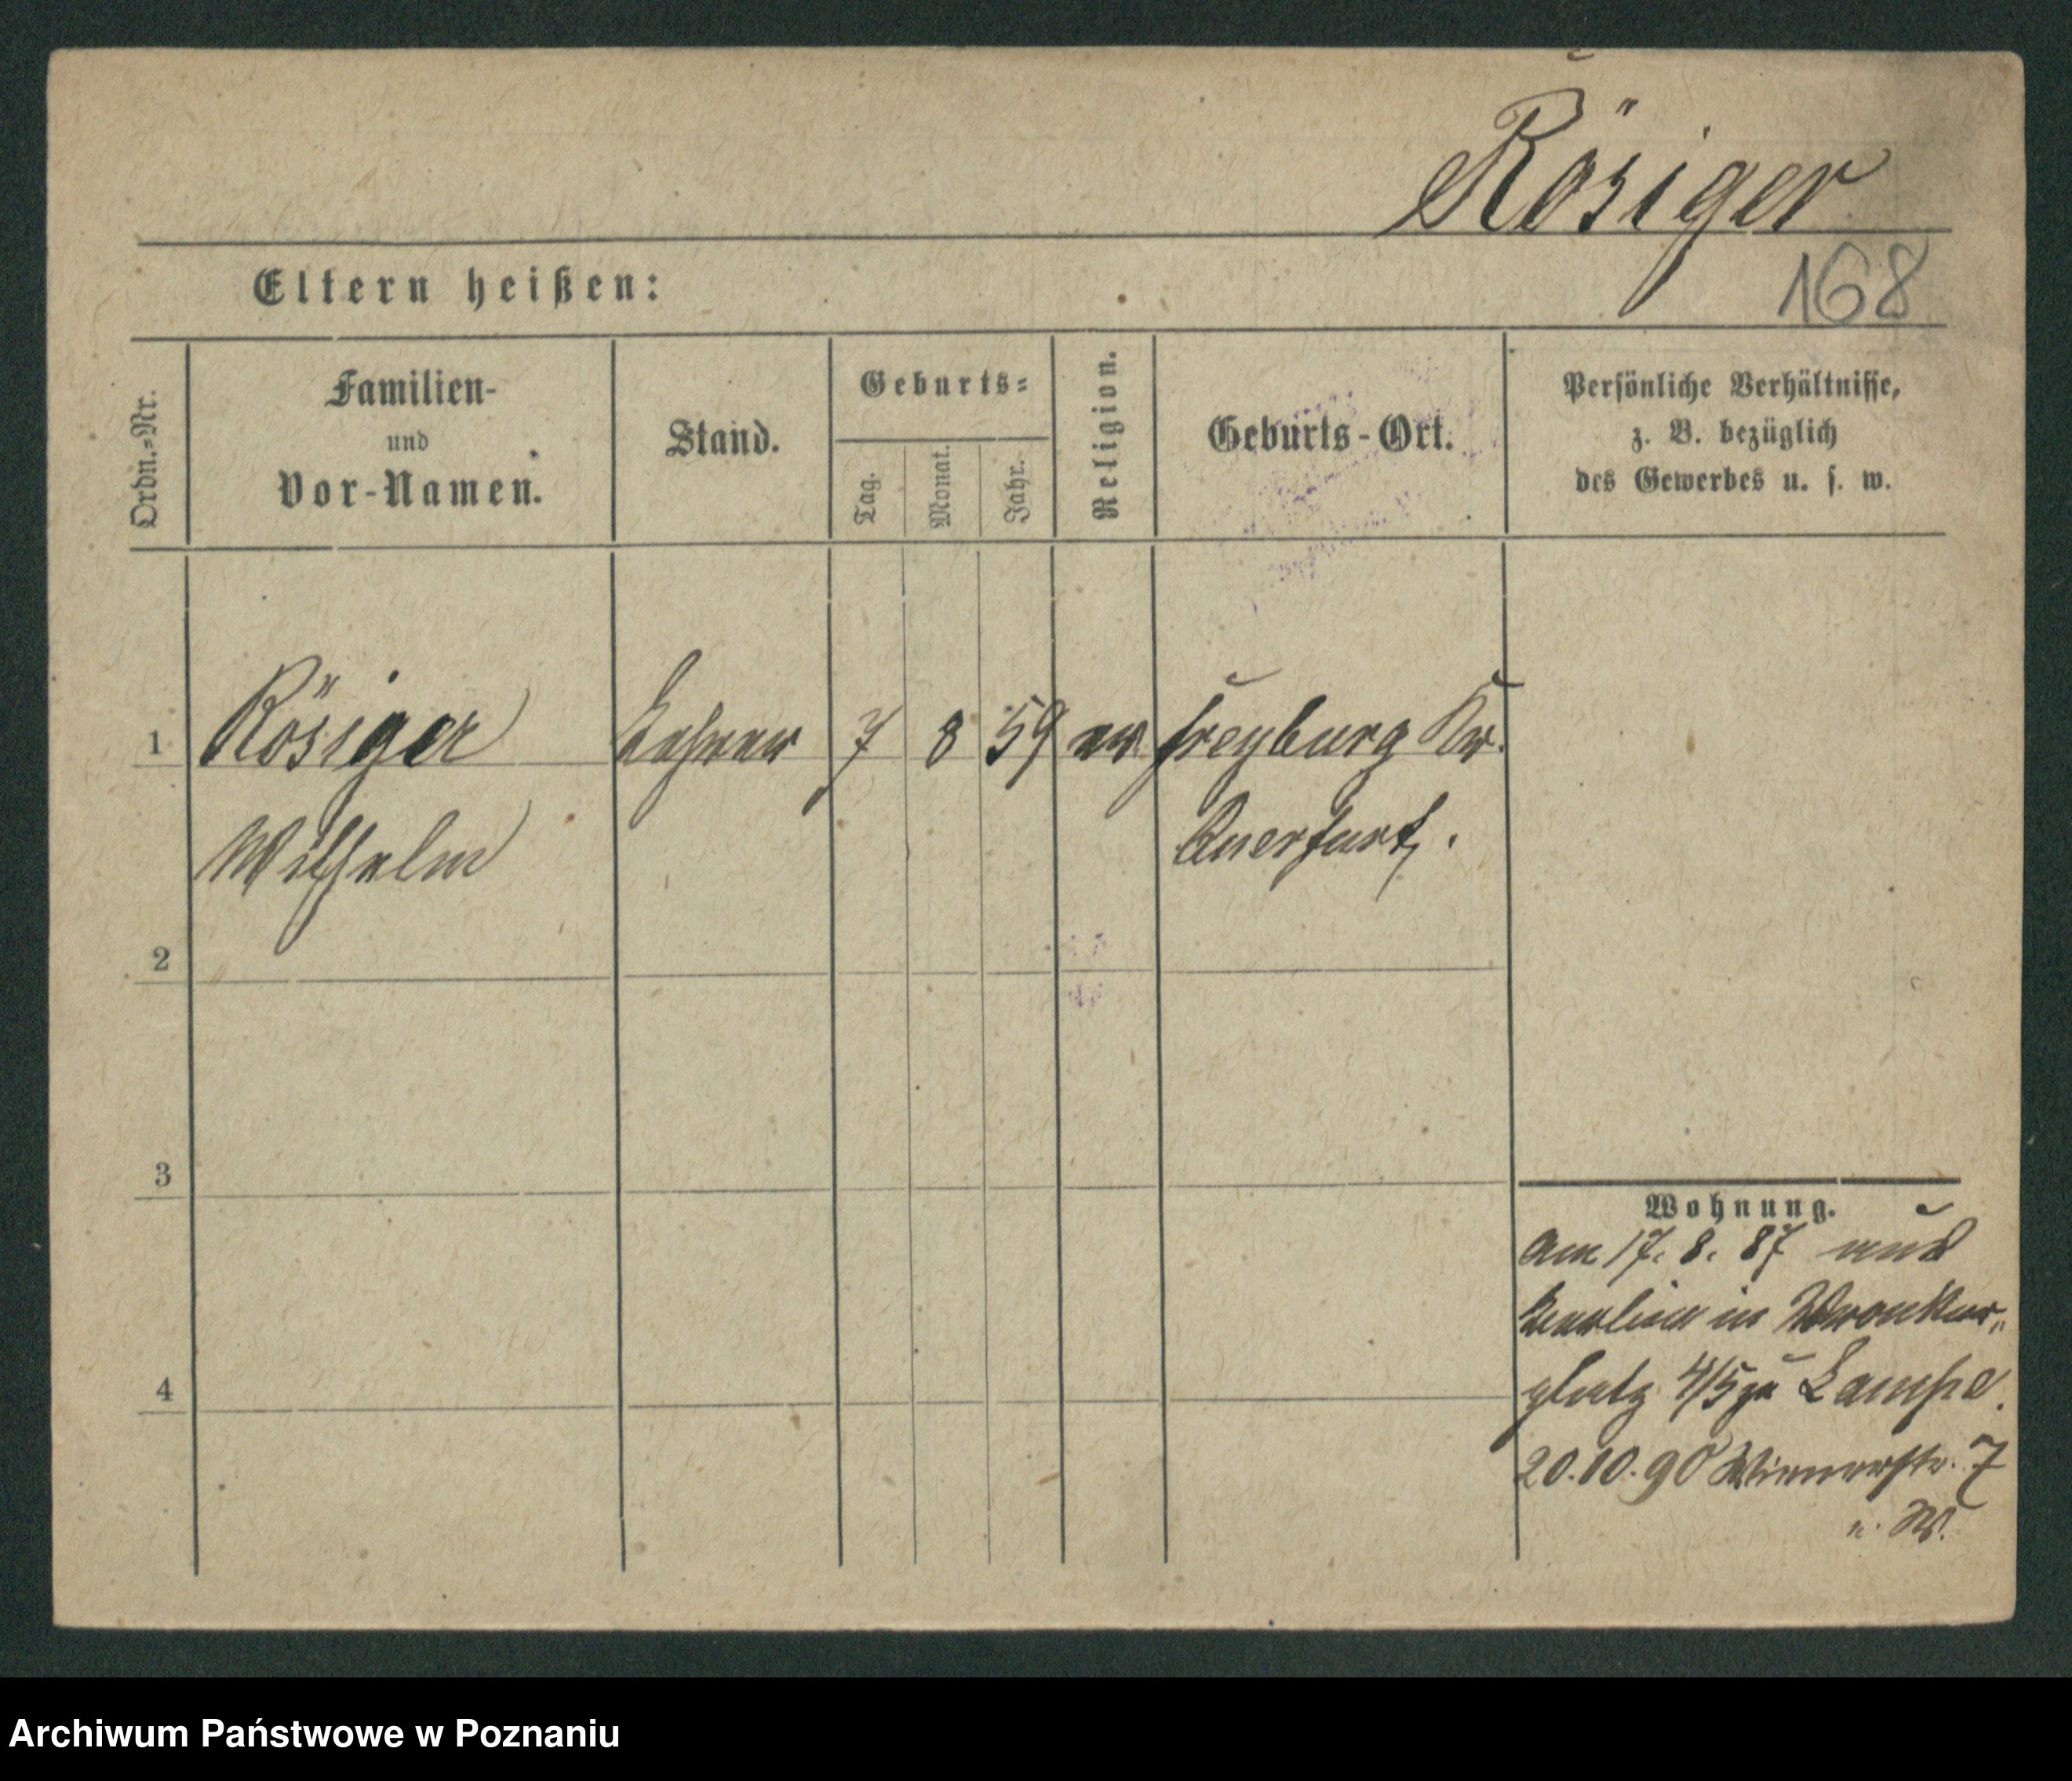 Rösiger
168
Eltern heißen:
Ordn.-Nr.
Familien-
und
Vor-Namen.
Stand.
Geburts-
Tag.
Monat.
Jahr.
Religion.
Geburts-Ort.
Persönliche Verhältnisse,
z. B. bezüglich
des Gewerbes u. s. w.
1 Rösiger Lehrer 7 8 59 ev Freyburg Kr.
Wilhelm Querfurt.
2
3
4
Wohnung.
Am 17. 8. 87 aus
Berlin in Wronker-
platz 4/5 zu Lampe.
20.10.90 Wienerstr. 7
Archiwum Państwowe w Poznaniu